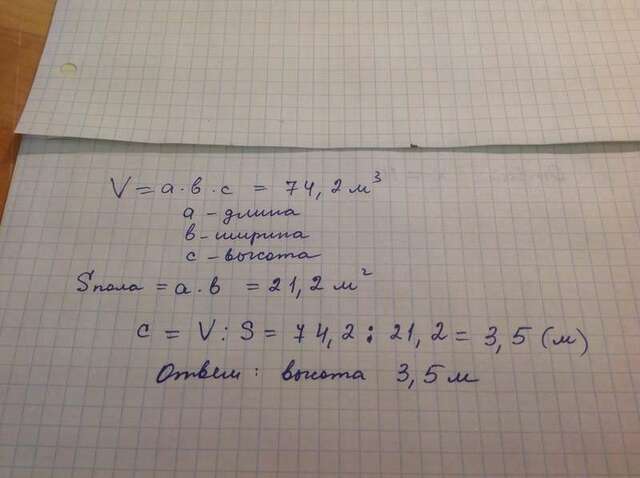 V = a · в · c = 74,2 м³
a – длина
в – ширина
c – высота
Sпола = a · в = 21,2 м²
c = V : S = 74,2 : 21,2 = 3,5 (м)
Ответ: высота 3,5 м